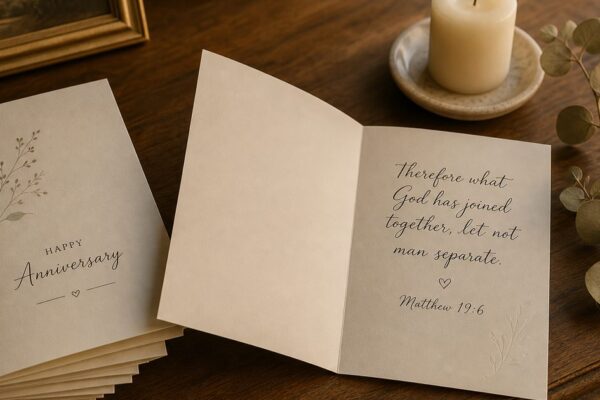 HAPPY
Anniversary
Therefore what
God has joined
together, let not
man separate.
Matthew 19:6